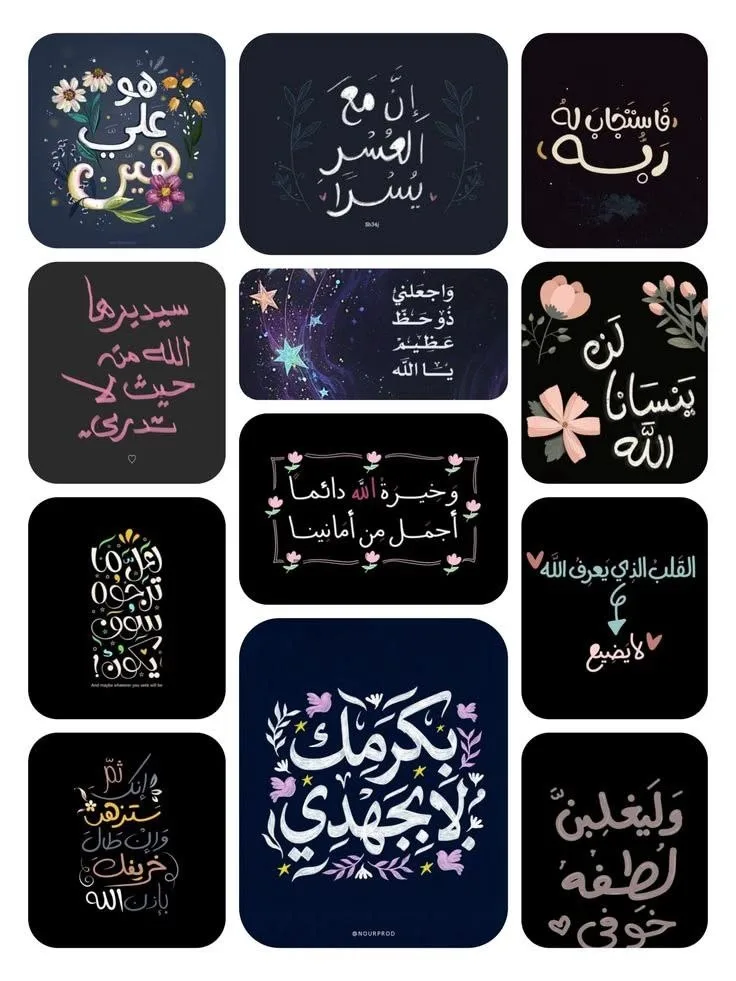 هو
عليّ
هين
إنَّ مَعَ
العُسْرِ
يُسْرًا
Sh34j
فَاسْتَجَابَ لَهُ
رَبُّهُ
سيدبرها
الله من
حيث لا
تدري
وَاجعلني
ذُو حَظّ
عَظِيمْ
يَا اللَّه
لَن
يَنْسَانا
اللَّه
وَخيرَة اللَّه دائماً
أجمَل مِن أمَانينا
لعَلّ مَا
تَرجُوهُ
سَوفَ
يَكُونُ!
And maybe whatever you seek will be
القَلبْ الذِي يَعرِفُ اللَّه
لا يَضيع
بِكَرَمِك
لَا بِجَهْدِي
@NOURPROD
ثمّ
إنك
ستزهر
وإن طال
خريفك
بإذن الله
وَلَيَغلِبنَّ
لُطفه
خَوفي